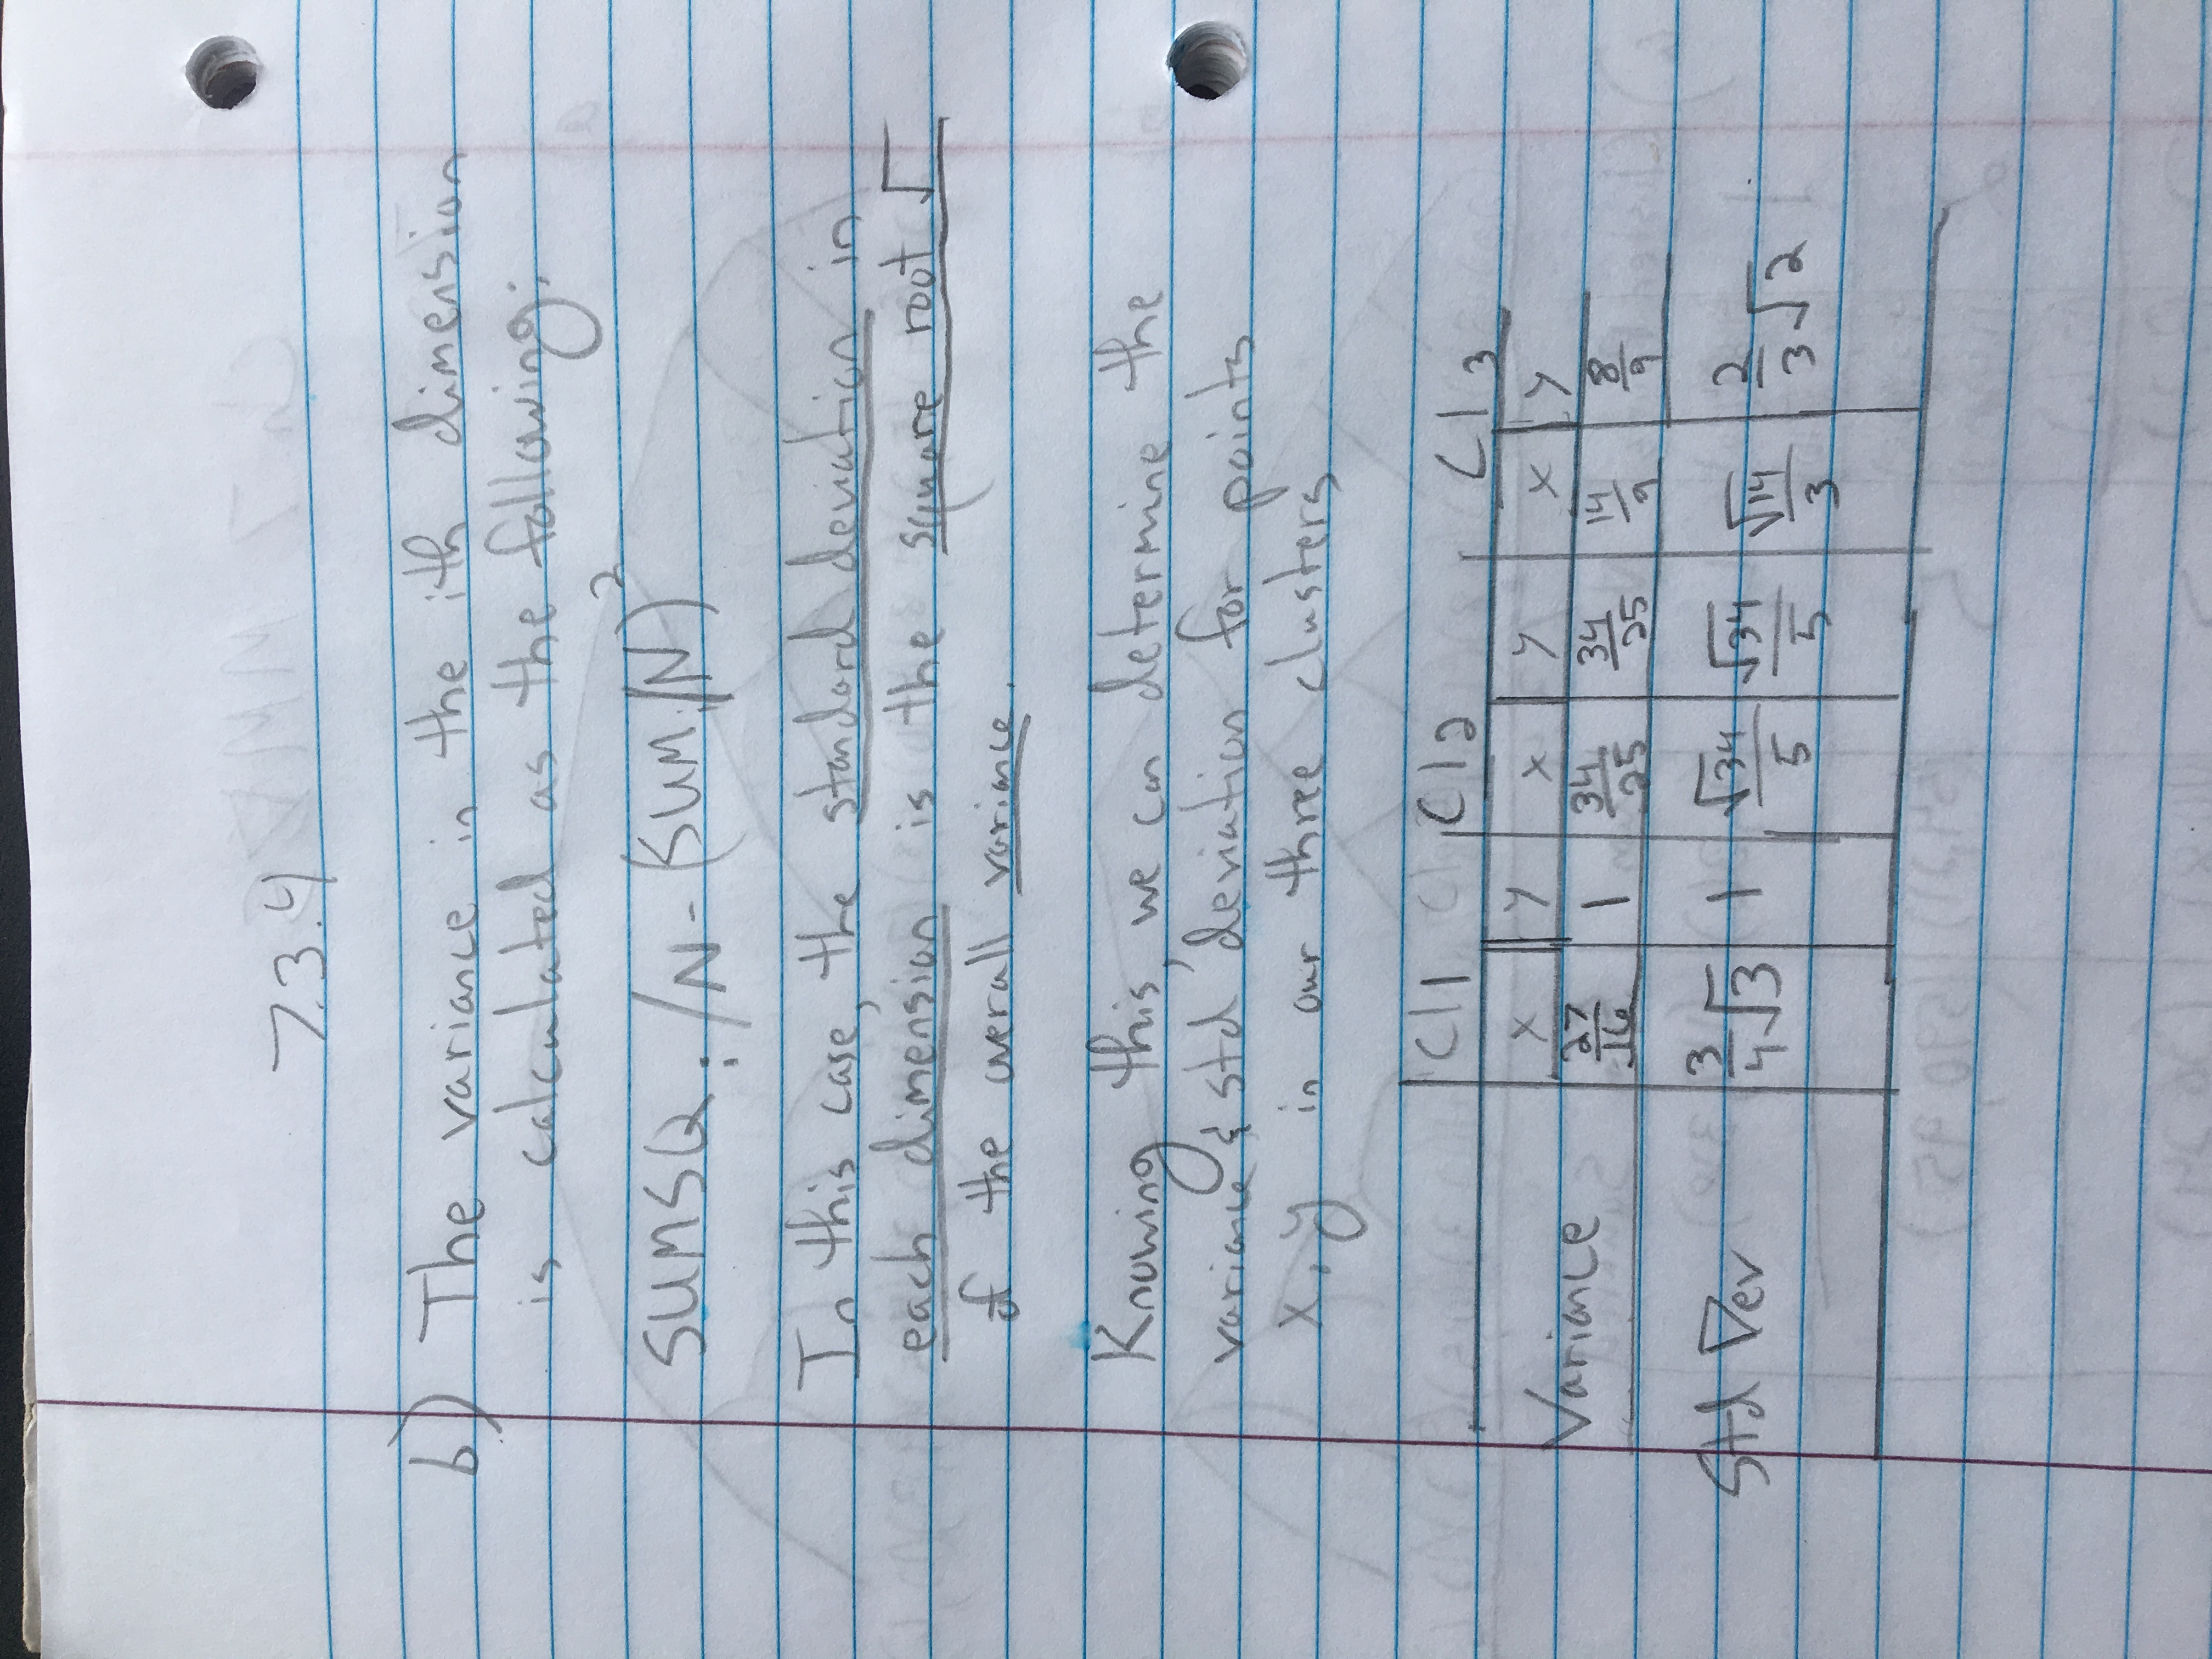 7.3.4
b) The variance in the ith dimension
is calculated as the following;
SUMSQᵢ/N - (SUMᵢ/N)²
In this case, the standard deviation in
each dimension is the square root √
of the overall variance.
Knowing this, we can determine the
variance & std deviation for points
x, y in our three clusters
Cl1 Cl2 Cl3
x y x y x y
Variance 27/16 1 34/25 34/25 14/9 8/9
Std Dev 3/4√3 1 √34/5 √34/5 √14/3 2/3√2